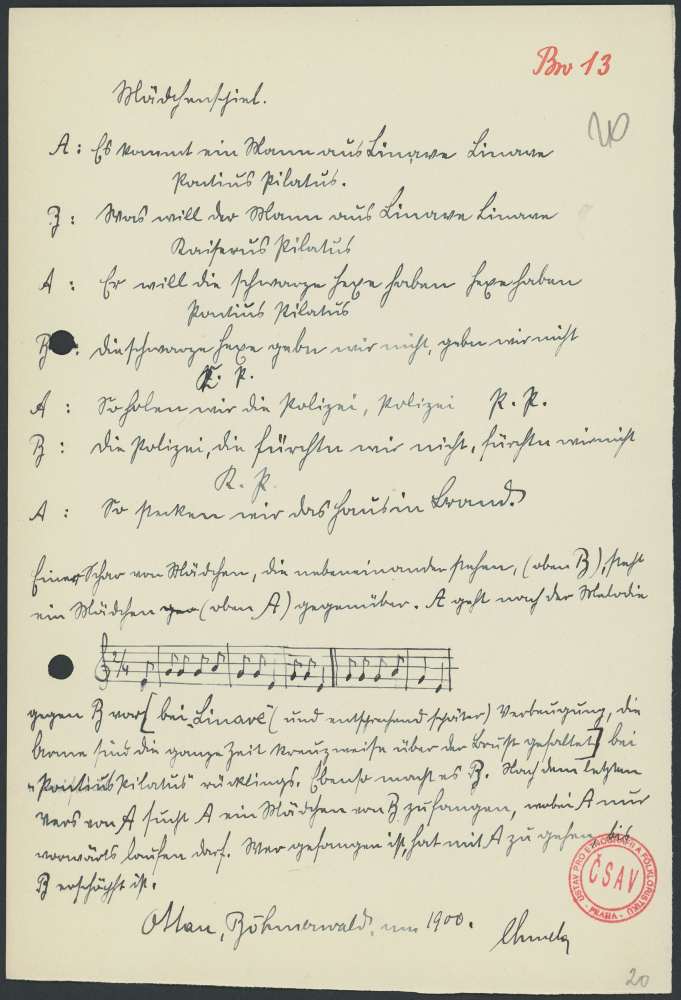 Bw 13
20
Mädchenspiel.
A: Es kommt ein Mann aus Linave Linave
Pontius Pilatus.
B: Was will der Mann aus Linave Linave
Kaiserus Pilatus
A: Er will die schwarze Hexe haben Hexe haben
Pontius Pilatus
B: die schwarze Hexe gebn wir nicht, gebn wir nicht
K. P.
A: So holen wir die Polizei, Polizei P. P.
B: die Polizei, die fürchtn wir nicht, fürchtn wir nicht
K. P.
A: So stecken wir das Haus in Brand.
Einer Schar von Mädchen, die nebeneinander stehen, (oben B), steht
ein Mädchen (oben A) gegenüber. A geht nach der Melodie
2/4
gegen B vor [bei „Linave" (und entsprechend später) Verbeugung, die
Arme sind die ganze Zeit kreuzweise über der Brust gefaltet] bei
"Pontius Pilatus" rücklings. Ebenso macht es B. Nach dem letzten
Vers von A sucht A ein Mädchen von B zu fangen, wobei A nur
vorwärts laufen darf. Wer gefangen ist, hat mit A zu gehen, bis
B erschöpft ist.
Ottau, Böhmerwald, um 1900.
ÚSTAV PRO ETNOGRAFII A FOLKLORISTIKU
ČSAV
PRAHA
20